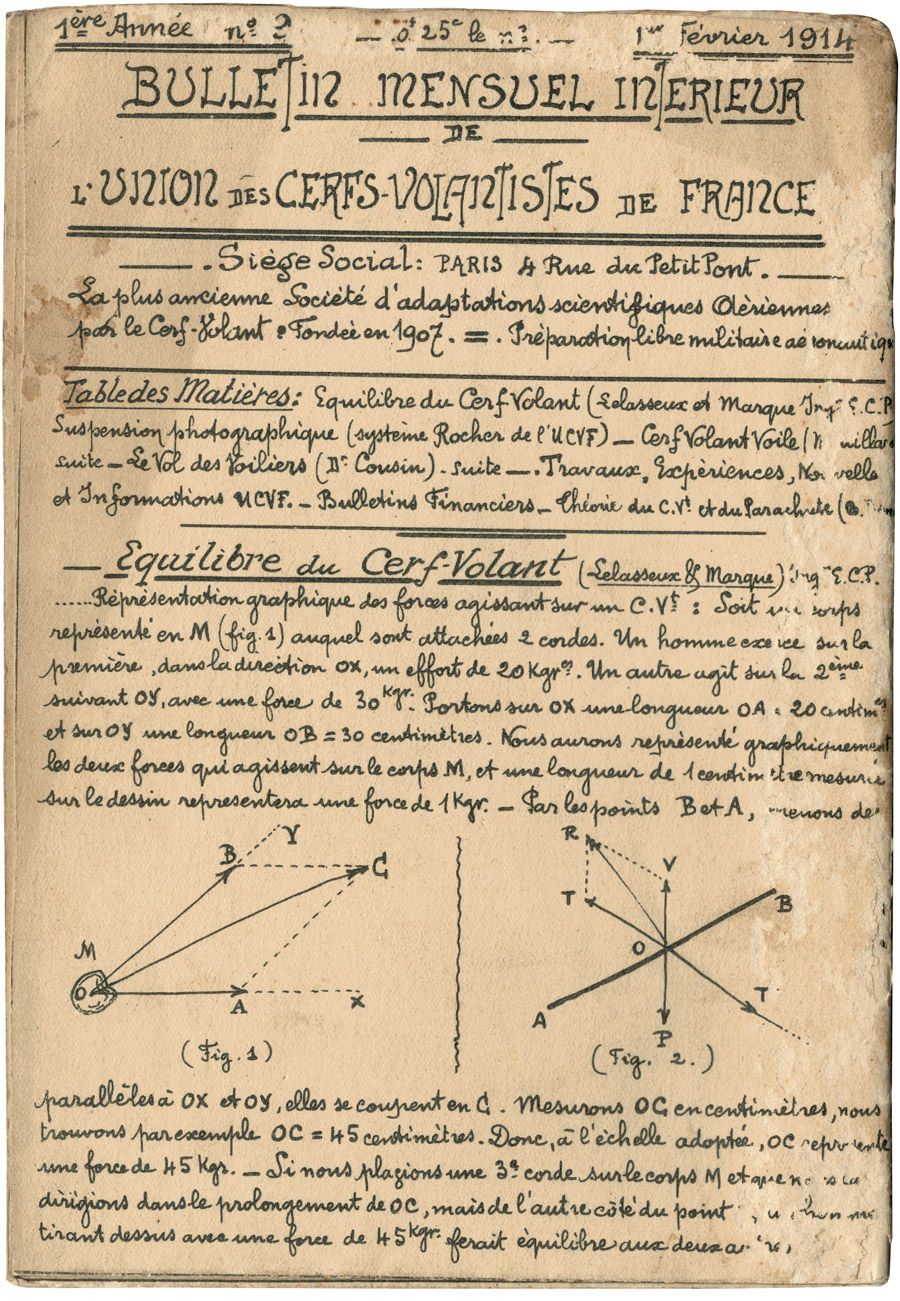 1ère Année nº 2 — 0f 25c le nº. — 1er Février 1914
BULLETIN MENSUEL INTERIEUR
DE
L'UNION DES CERFS-VOLANTISTES DE FRANCE
— . Siège Social : PARIS 4 Rue du Petit Pont. —
La plus ancienne Société d'adaptations scientifiques Aériennes
par le Cerf-Volant : Fondée en 1907. = . Préparation libre militaire
Table des Matières : Equilibre du Cerf Volant (Lelasseux et Marque Ingrs E.C.P
Suspension photographique (système Rocher de l'UCVF) — Cerf Volant Voile
suite — Le Vol des Voiliers (Dr Cousin) . suite — . Travaux, Expèriences,
et Informations UCVF. — Bulletins Financiers — Théorie du C.Vt et du Parachute
— Equilibre du Cerf-Volant (Lelasseux & Marque) E.C.P.
......Réprésentation graphique des forces agissant sur un C.Vt : Soit
représenté en M (fig. 1) auquel sont attachées 2 cordes. Un homme sur la
première, dans la direction OX, un effort de 20 Kgres. Un autre agit sur la 2ème
suivant OY, avec une force de 30 Kgr. Portons sur OX une longueur OA = 20
et sur OY une longueur OB = 30 centimètres. Nous aurons représenté graphiquement
les deux forces qui agissent sur le corps M, et une longueur de 1 mesurée
sur le dessin representera une force de 1 Kgr. — Par les points B et A,
Y
B
C
M
O
A
X
(Fig. 1)
R
V
T
B
O
A
T
P
(Fig. 2.)
parallèles à OX et OY, elles se coupent en C. Mesurons OC en centimètres, nous
trouvons par exemple OC = 45 centimètres. Donc, à l'échelle adoptée, OC
une force de 45 Kgr. — Si nous plagions une 3e corde sur le corps M et que
dirigions dans le prolongement de OC, mais de l'autre côté du point
tirant dessus avec une force de 45 Kgr. ferait équilibre aux deux